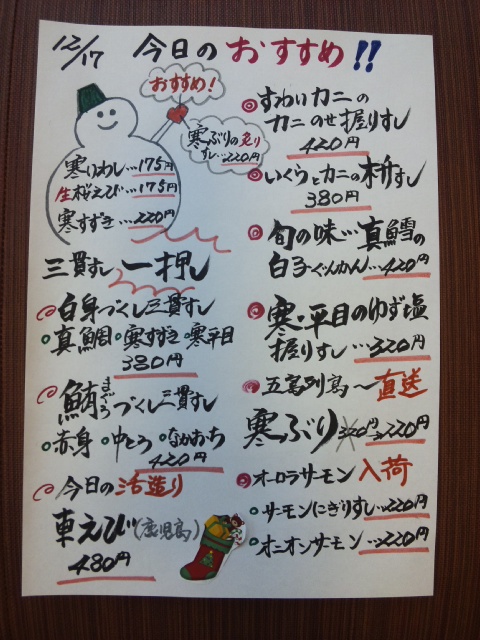 12/17 今日のおすすめ!!
おすすめ!
寒ぶりの炙り
すし…220円
寒いわし…175円
生桜えび…175円
寒すずき…220円
三貫すし 一押し
白身づくし三貫すし
真鯛 寒すずき 寒平目
380円
鮪づくし三貫すし
まぐろ
赤身 中とろ なかおち
420円
今日の活造り
車えび(鹿児島)
480円
すわいカニの
カニのせ握りすし
420円
いくらとカニの枡すし
380円
旬の味…真鱈の
白子ぐんかん…420円
寒・平目のゆず塩
握りすし…320円
五島列島〜直送
寒ぶり 320円→220円
オーロラサーモン入荷
サーモンにぎりすし…220円
オニオンサーモン…220円